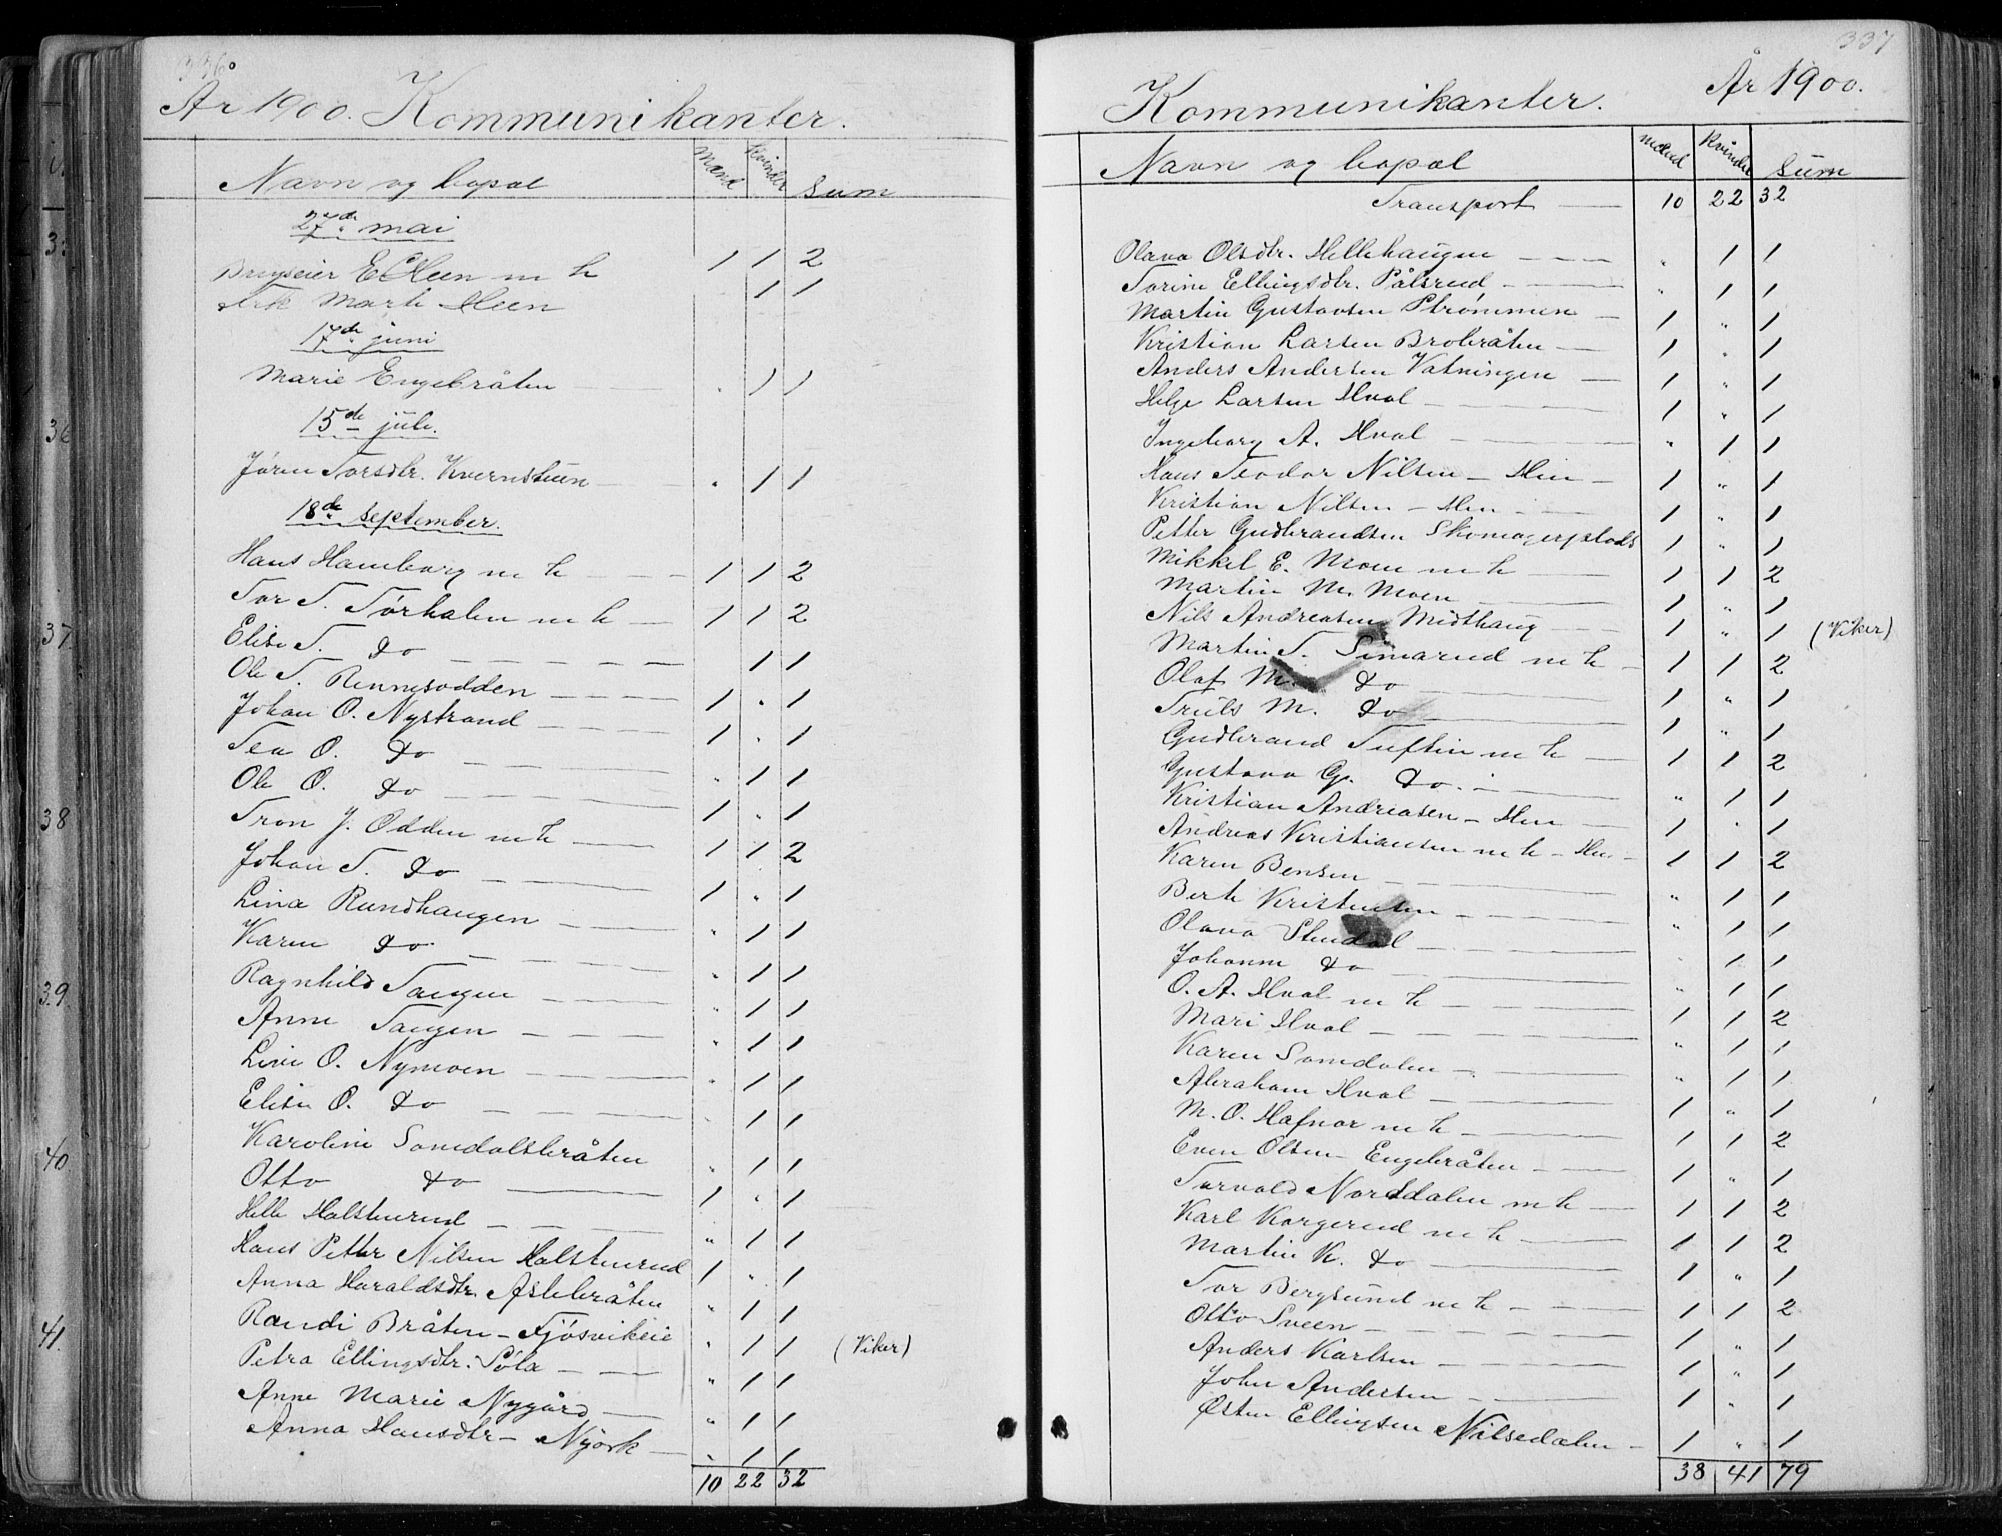 336
År 1900. Kommunikanter.
Navn og bopæl Mænd Kvinder Sum
27de mai
E Heen m h 1 1 2
Frk Marte Heen 1 1
17de juni
Marie Engebråten " 1 1
15de juli.
Jøren Torsdtr. Kvernstuen " 1 1
18de september.
Hans Hamborg m h 1 1 2
Tor T. Tørhalen m h 1 1 2
Elise T. do 1 1
Ole T. Rennesodden 1 " 1
Johan O. Nystrand 1 " 1
Tea O. do " 1 1
Ole O. do 1 " 1
Tron J. Odden m h 1 1 2
Johan T. do 1 " 1
Lina Rundhaugen " 1 1
Karen do " 1 1
Ragnhild Taugen " 1 1
Anne Taugen " 1 1
Livi O. Nymoen " 1 1
Elise O. do " 1 1
Karoline Somdalsbråten " 1 1
Otto do 1 " 1
Helle Halstenrud " 1 1
Hans Petter Nilsen Halstenrud 1 " 1
Anna Haraldsdtr. Aslebråten " 1 1
Randi Bråten - Fjøsvikeie " 1 1 (Viker)
Petra Ellingsdtr. Søla " 1 1
Anne Marie Nygård " 1 1
Anna Hansdtr - Nyørk " 1 1
10 22 32
337
Kommunikanter. År 1900.
Navn og bopæl Mænd Kvinder Sum
Transport 10 22 32
Olava Olsdtr. Hellehaugen " 1 1
Torine Ellingsdtr. Pålsrud " 1 1
Martin Gustavsen Strømmen 1 " 1
Kristian Larsen Brobråten 1 " 1
Anders Andersen Vatningen 1 " 1
Helge Larsen Hval 1 " 1
Ingeborg A. Hval " 1 1
Hans Teodor Nilsen - Hen 1 " 1
Kristian Nilsen - Hen 1 " 1
Petter Gudbrandsen Skomagerplads 1 " 1
Mikkel E. Moen m h 1 1 2
Martin M. Moen 1 " 1
Nils Andreasen Midthaug 1 " 1 (Viker)
Martin T. Simarud m h 1 1 2
Olaf M. do 1 " 1
Truls M. do 1 " 1
Gudbrand Tuftin m h 1 1 2
Gustava G. do. " 1 1
Kristian Andreasen - Hen 1 " 1
Andreas Kristiansen m h - Hen 1 1 2
Karen Bensen " 1 1
Berte Kristensen " 1 1
Olava Stendal " 1 1
Johanne do " 1 1
O. A. Hval m h 1 1 2
Mari Hval " 1 1
Karen Somdalen " 1 1
Abraham Hval 1 " 1
M. O. Hafnor m h 1 1 2
Even Olsen - Engebråten 1 " 1
Torvald Norddalen m h 1 1 2
Karl Korgerud m h 1 1 2
Martin K. do 1 " 1
Tor Bergsund m h 1 1 2
Otto Sveen 1 " 1
Anders Karlsen 1 " 1
John Andersen 1 " 1
Østen Ellingsen Nilsedalen 1 " 1
38 41 79
36
37
38
39
40
41.